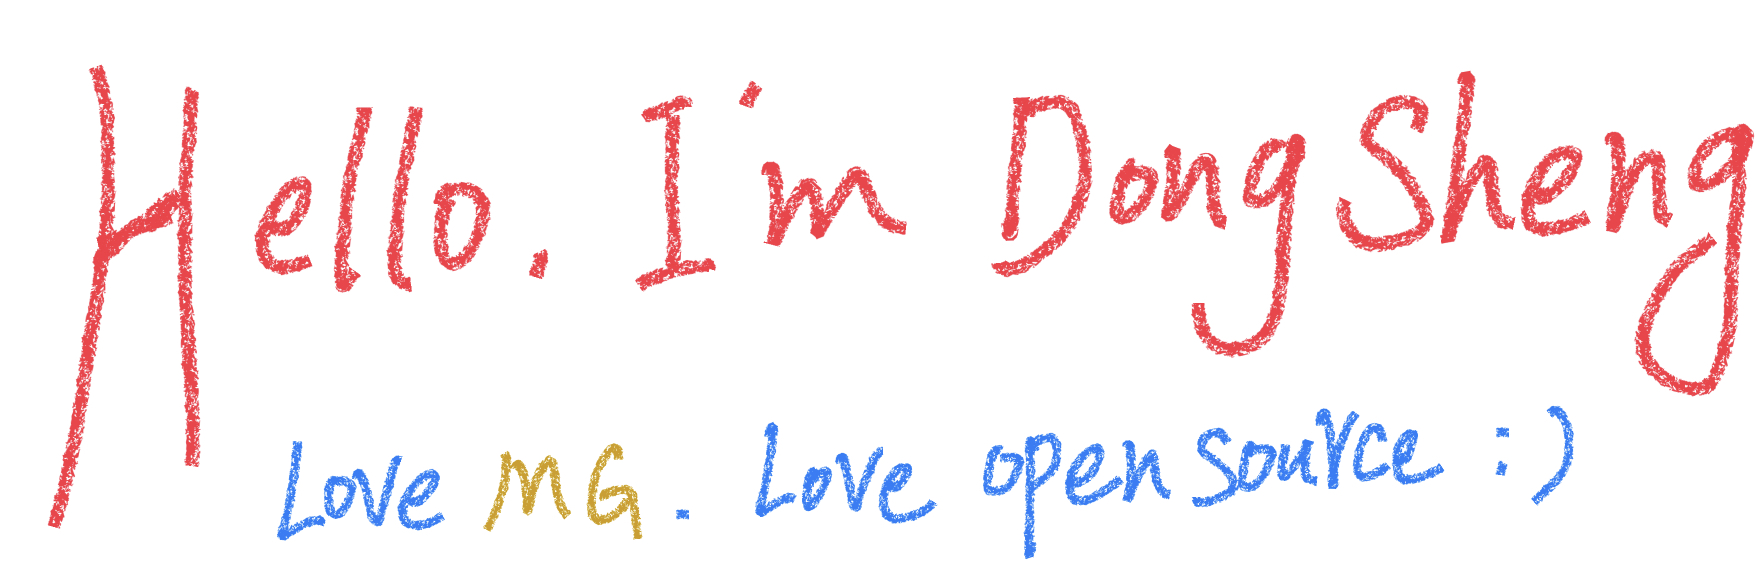 Hello. I'm DongSheng
Love MG. Love opensource :)